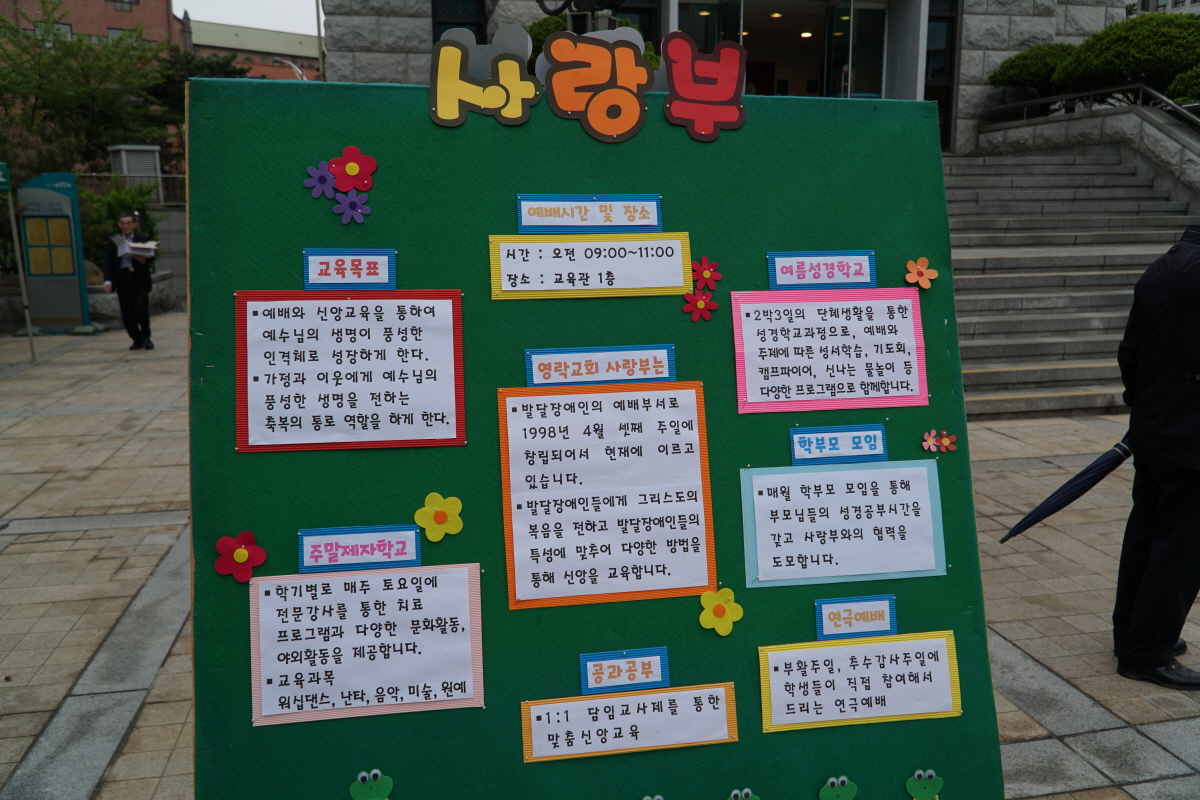 사랑부
예배시간 및 장소
시간 : 오전 09:00~11:00
장소 : 교육관 1층
교육목표
▪예배와 신앙교육을 통하여
예수님의 생명이 풍성한
인격체로 성장하게 한다.
▪가정과 이웃에게 예수님의
풍성한 생명을 전하는
축복의 통로 역할을 하게 한다.
영락교회 사랑부는
▪발달장애인의 예배부서로
1998년 4월 셋째 주일에
창립되어서 현재에 이르고
있습니다.
▪발달장애인들에게 그리스도의
복음을 전하고 발달장애인들의
특성에 맞추어 다양한 방법을
통해 신앙을 교육합니다.
여름성경학교
▪2박3일의 단체생활을 통한
성경학교과정으로, 예배와
주제에 따른 성서학습, 기도회,
캠프파이어, 신나는 물놀이 등
다양한 프로그램으로 함께합니다.
학부모 모임
▪매월 학부모 모임을 통해
부모님들의 성경공부시간을
갖고 사랑부와의 협력을
도모합니다.
주말제자학교
▪학기별로 매주 토요일에
전문강사를 통한 치료
프로그램과 다양한 문화활동,
야외활동을 제공합니다.
▪교육과목
워십댄스, 난타, 음악, 미술, 원예
공과공부
▪1:1 담임교사제를 통한
맞춤신앙교육
연극예배
▪부활주일, 추수감사주일에
학생들이 직접 참여해서
드리는 연극예배